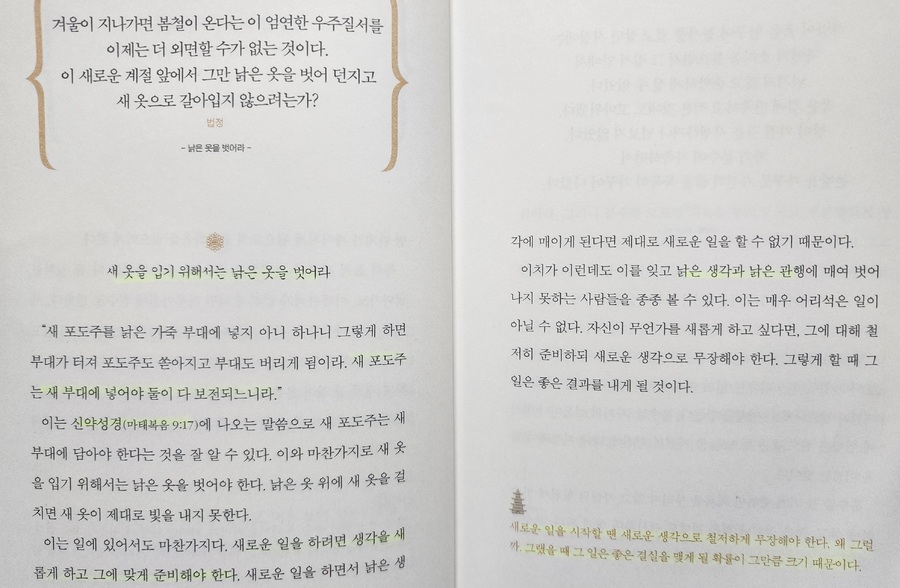 겨울이 지나가면 봄철이 온다는 이 엄연한 우주질서를
이제는 더 외면할 수가 없는 것이다.
이 새로운 계절 앞에서 그만 낡은 옷을 벗어 던지고
새 옷으로 갈아입지 않으려는가?
법정
- 낡은 옷을 벗어라 -
새 옷을 입기 위해서는 낡은 옷을 벗어라
“새 포도주를 낡은 가죽 부대에 넣지 아니 하나니 그렇게 하면
부대가 터져 포도주도 쏟아지고 부대도 버리게 됨이라. 새 포도주
는 새 부대에 넣어야 둘이 다 보전되느니라.”
이는 신약성경(마태복음 9:17)에 나오는 말씀으로 새 포도주는 새
부대에 담아야 한다는 것을 잘 알 수 있다. 이와 마찬가지로 새 옷
을 입기 위해서는 낡은 옷을 벗어야 한다. 낡은 옷 위에 새 옷을 걸
치면 새 옷이 제대로 빛을 내지 못한다.
이는 일에 있어서도 마찬가지다. 새로운 일을 하려면 생각을 새
롭게 하고 그에 맞게 준비해야 한다. 새로운 일을 하면서 낡은 생
각에 매이게 된다면 제대로 새로운 일을 할 수 없기 때문이다.
이치가 이런데도 이를 잊고 낡은 생각과 낡은 관행에 매여 벗어
나지 못하는 사람들을 종종 볼 수 있다. 이는 매우 어리석은 일이
아닐 수 없다. 자신이 무언가를 새롭게 하고 싶다면, 그에 대해 철
저히 준비하되 새로운 생각으로 무장해야 한다. 그렇게 할 때 그
일은 좋은 결과를 내게 될 것이다.
새로운 일을 시작할 땐 새로운 생각으로 철저하게 무장해야 한다. 왜 그럴
까. 그랬을 때 그 일은 좋은 결실을 맺게 될 확률이 그만큼 크기 때문이다.